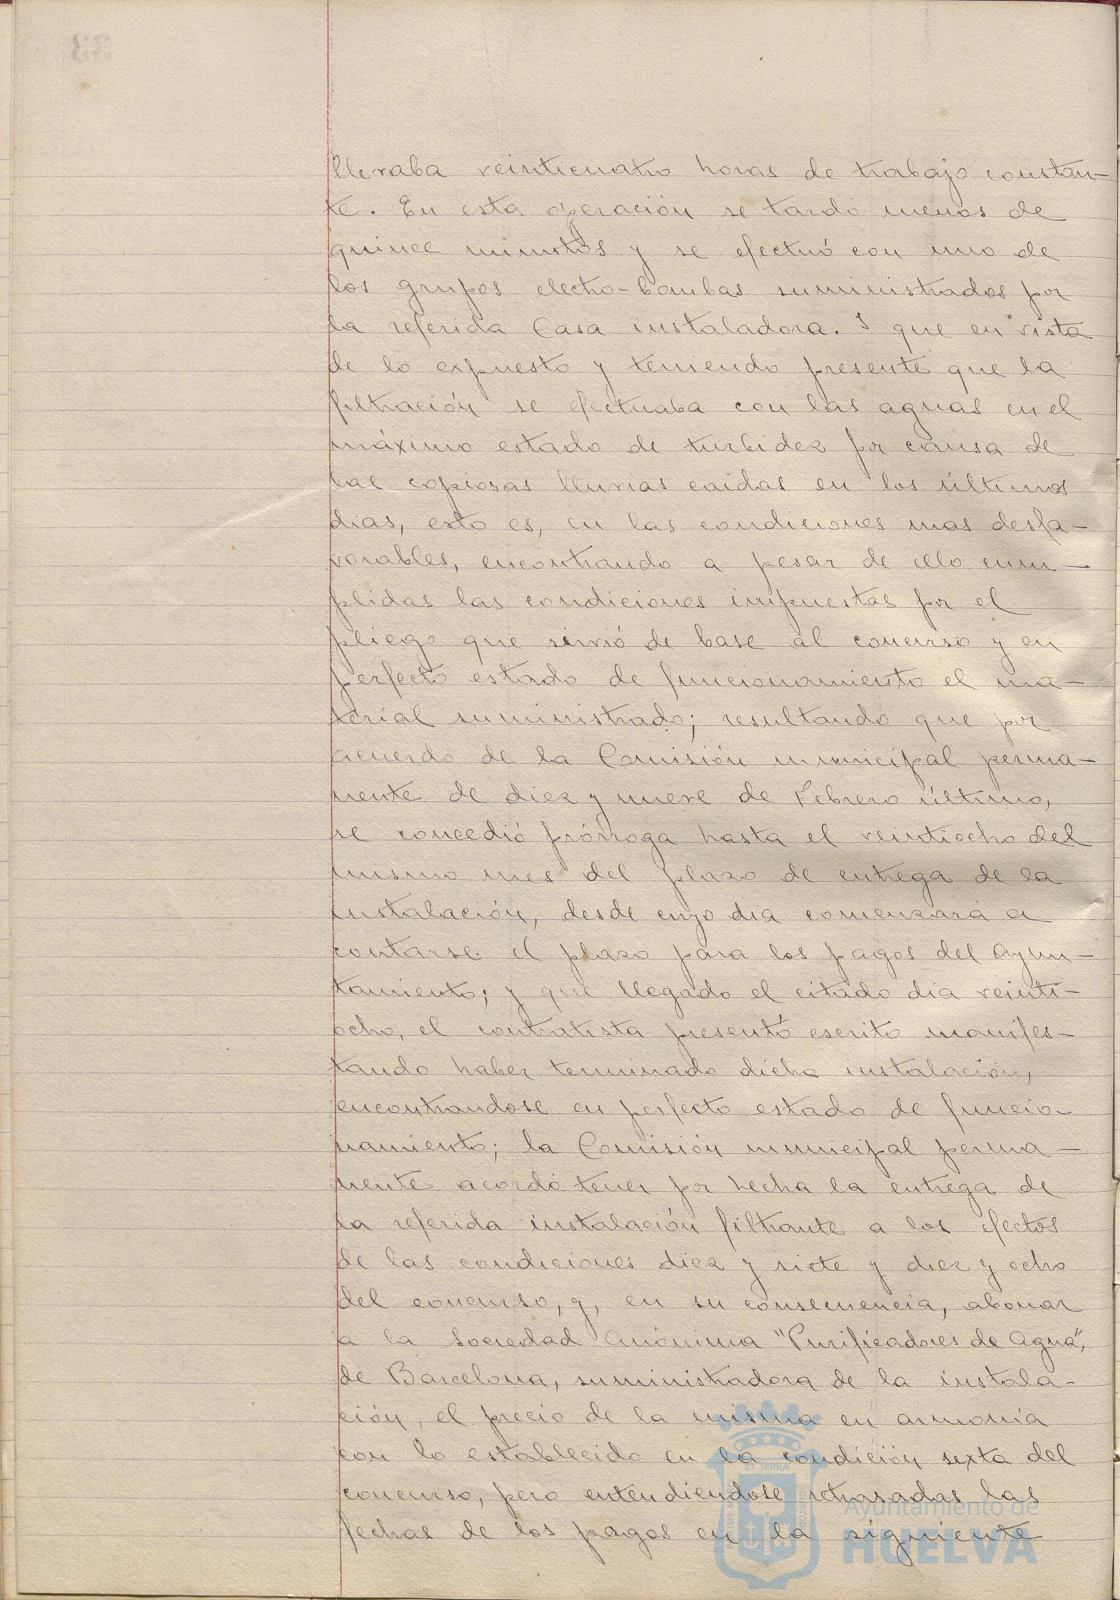 llevaba veinticuatro horas de trabajo constan-
te. En esta operación se tardó menos de
quince minutos y se efectuó con uno de
los grupos electro-bombas suministrados por
la referida Casa instaladora. Y que en vista
de lo expuesto y teniendo presente que la
filtración se efectuaba con las aguas en el
máximo estado de turbidez por causa de
las copiosas lluvias caidas en los últimos
dias, esto es, en las condiciones mas desfa-
vorables, encontrando a pesar de ello cum-
plidas las condiciones impuestas por el
pliego que sirvió de base al concurso y en
perfecto estado de funcionamiento el ma-
terial suministrado; resultando que por
acuerdo de la Comisión municipal perma-
nente de diez y nueve de Febrero último,
se concedió prórroga hasta el veintiocho del
mismo mes del plazo de entrega de la
instalación, desde cuyo dia comenzará a
contarse el plazo para los pagos del Ayun-
tamiento; y que llegado el citado dia veinti-
ocho, el contratista presentó escrito manifes-
tando haber terminado dicha instalación,
encontrandose en perfecto estado de funcio-
namiento; la Comisión municipal perma-
nente acordó tener por hecha la entrega de
la referida instalación filtrante a los efectos
de las condiciones diez y siete y diez y ocho
del concurso, y, en su consecuencia, abonar
a la Sociedad Anónima "Purificadores de Agua",
de Barcelona, suministradora de la instala-
ción, el precio de la misma en armonía
con lo establecido en la condición sexta del
concurso, pero entendiendose retrasadas las
fechas de los pagos en la siguiente
Ayuntamiento de
HUELVA